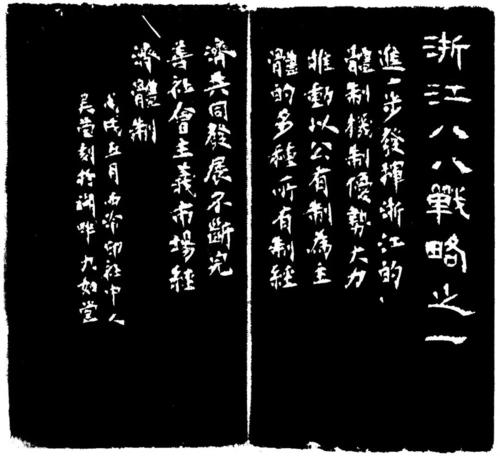 浙江八八戰略之一
進一步發揮浙江的
體制機制優勢大力
推動以公有制為主
體的多種所有制經
濟共同發展不斷完
善社會主義市場經
濟體制
戊戌五月西泠印社中人
吳瑩刻於湖畔九如堂